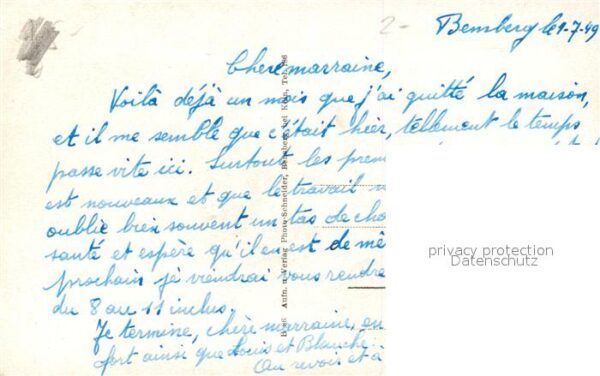 2-
Bensberg le 1-7-49
Chère marraine,
Voilà déjà un mois que j'ai quitté la maison,
et il me semble que c'était hier, tellement le temps
passe vite ici. Surtout les prem
est nouveaux et que le travail
oublie bien souvent un tas de cho
santé et espère qu'il en est de mê
prochain je viendrai vous rendre
du 8 au 11 inclus.
Je termine, chère marraine, en
fort ainsi que Louis et Blanche.
Au revoir et à
Aufn. u. Verlag Photo-Schneider, Bensberg bei Köln, Tel.
privacy protection
Datenschutz